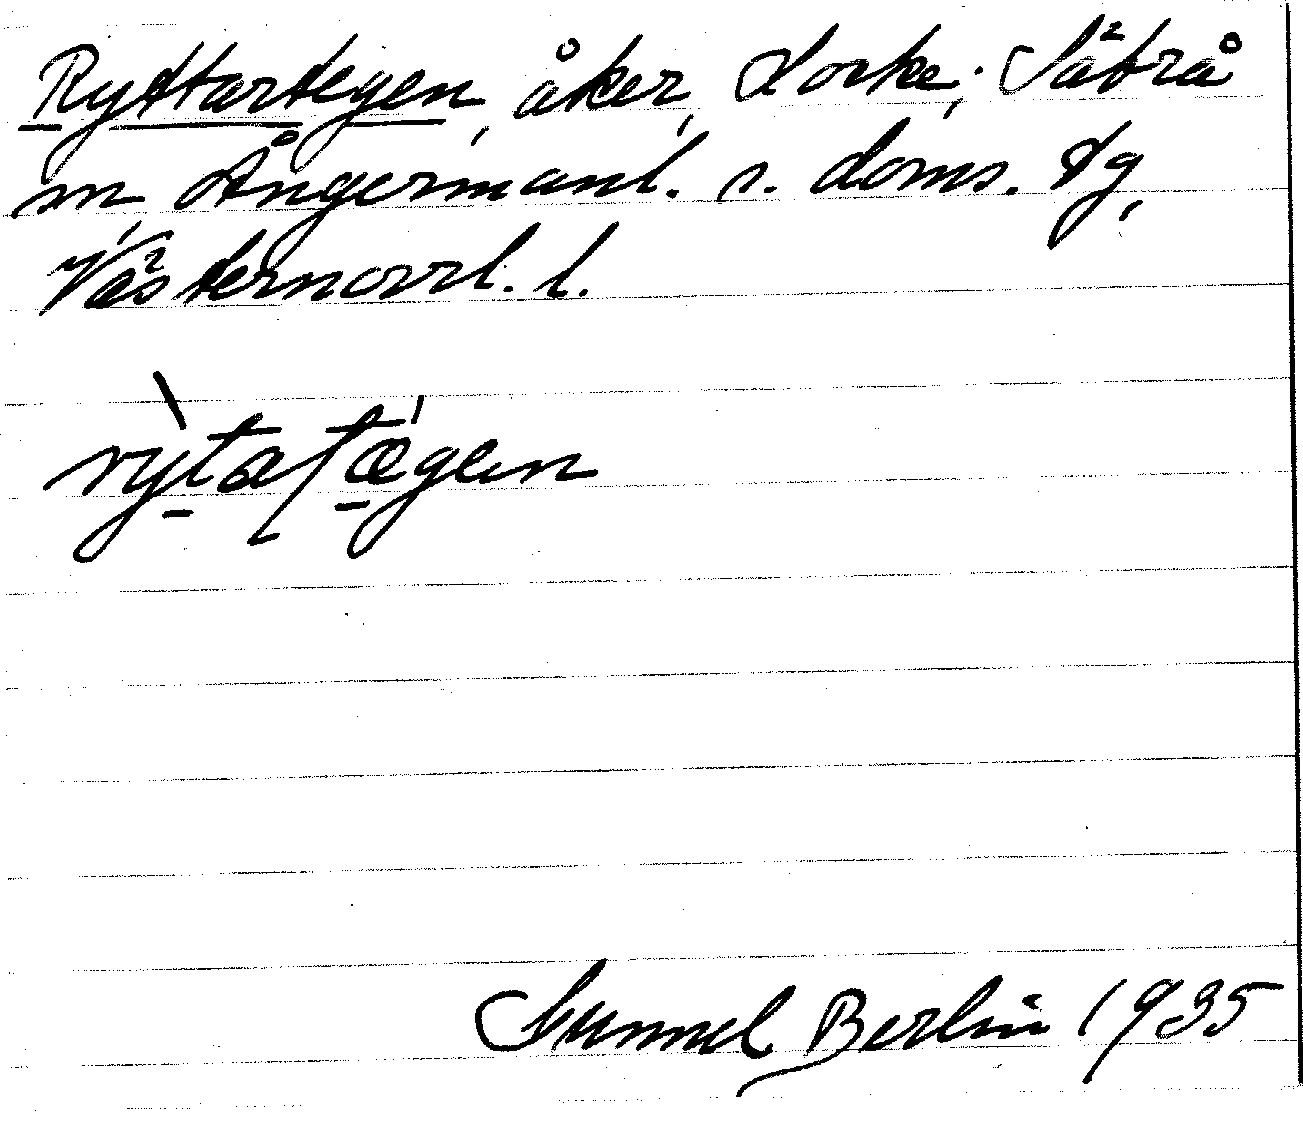 Ryttartegen, åker, Locke; Säbrå
sn, Ångermanl. s. doms. tg,
Västernorrl. l.
rỳtaʃtǽgen
Gunnel Berlin 1935